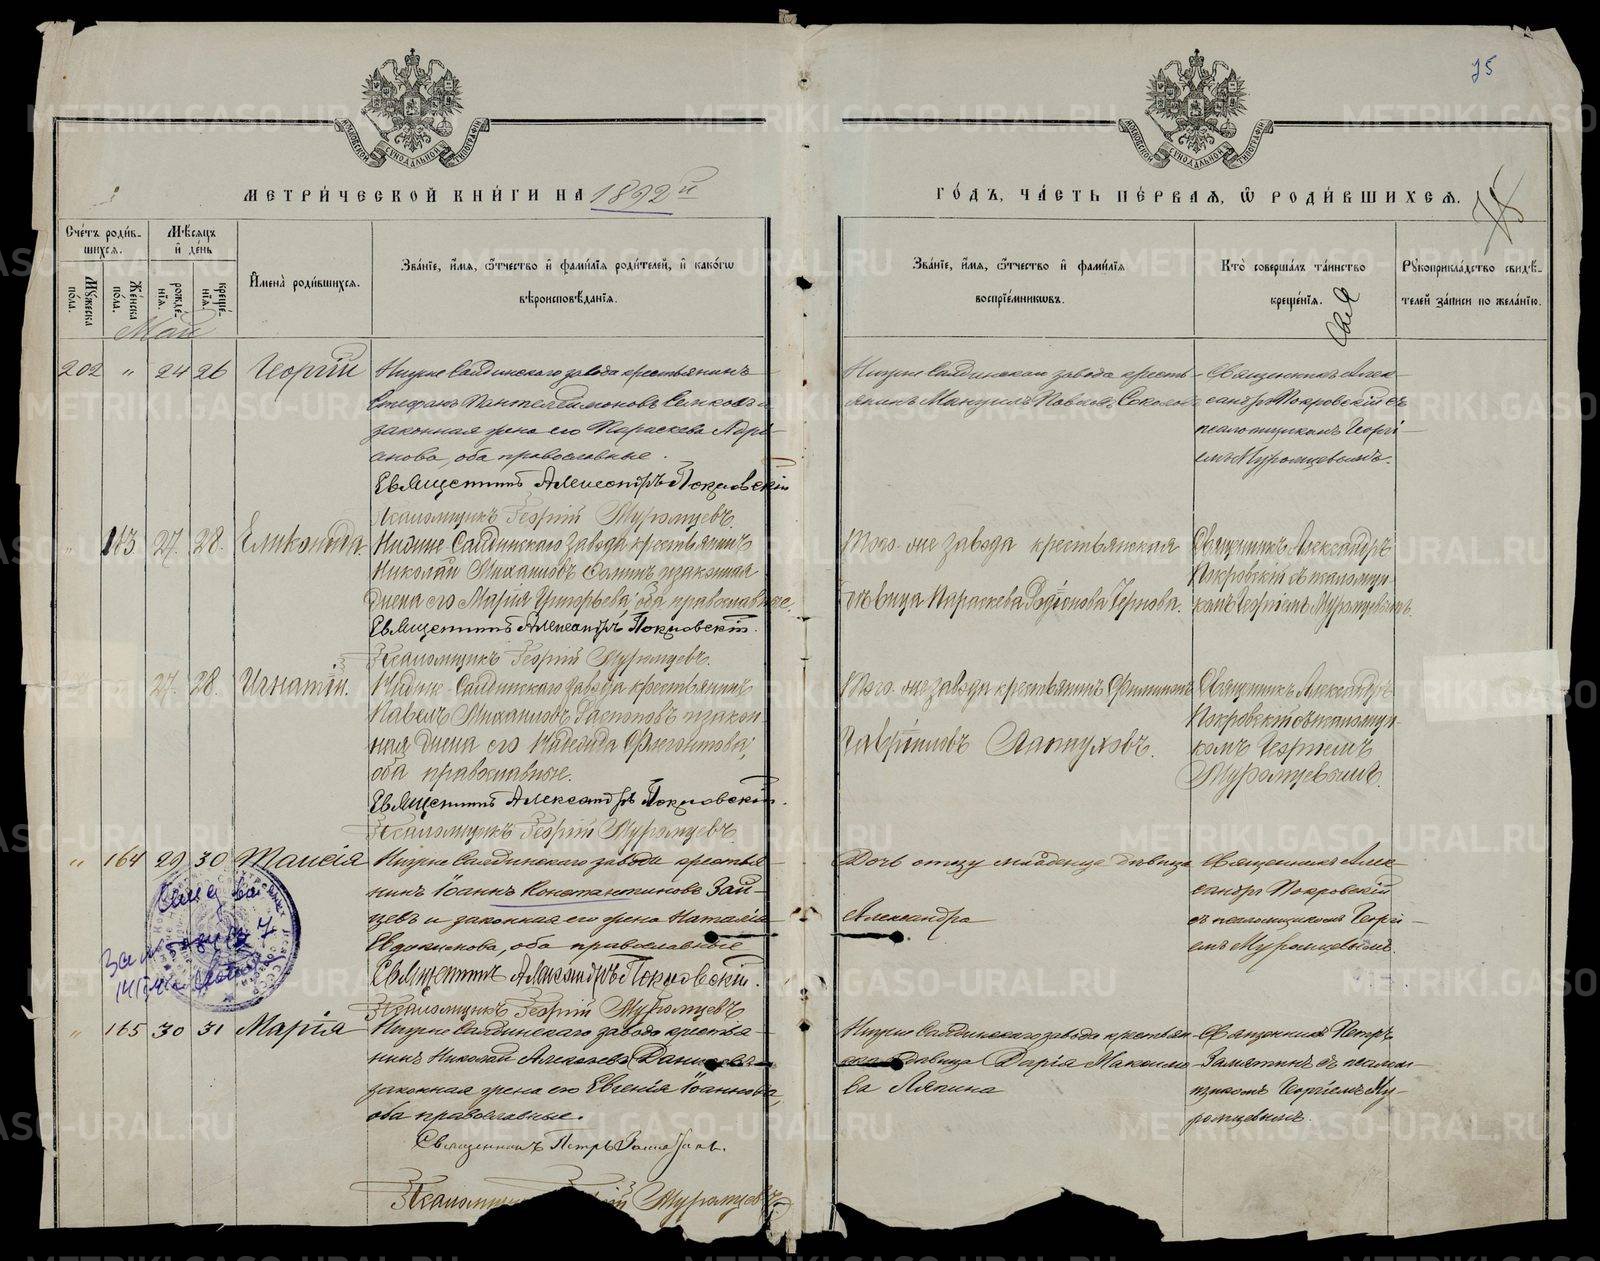 75
МОСКОВСКОЙ СѴНОДАЛЬНОЙ ТИПОГРАФІИ
МОСКОВСКОЙ СѴНОДАЛЬНОЙ ТИПОГРАФІИ
МЕТРИ́ЧЕСКОЙ КНИ́ГИ НА 1892 й
ГО́ДЪ, ЧА́СТЬ ПЕ́РВАЯ, Ѡ РОДИ́ВШИХСЯ.
Сче́тъ роди́в-
шихся.
Му́жеска по́ла.
Же́нска по́ла.
Мѣ́сяцъ
и де́нь
рожде́-
нія.
креще́-
нія.
Имена̀ роди́вшихся.
Зва́ніе, и́мя, о́тчество и фами́лія роди́телей, и како́гѡ
вѣроисповѣ́данія.
Зва́ніе, и́мя, о́тчество и фами́лія
воспріе́мниковъ.
Кто̀ соверша́лъ та́инство
креще́нія.
Рꙋкоприкла́дство свидѣ́-
телей за́писи по жела́нію.
Май
202 " 24 26 Георгій
Нижне Салдинскаго завода крестьянинъ
Стефанъ Пантелеимоновъ и
законная жена его Параскева Адрі-
анова, оба православные.
Священникъ Александръ Покровскій
Псаломщикъ Георгій Муромцевъ.
Нижне Салдинскаго завода кресть-
янинъ Мануилъ Павловъ Соколовъ
Священникъ Алек-
сандръ Покровскій съ
псаломщикомъ Георгі-
емъ Муромцевымъ.
" 163 27. 28. Еликонида.
Нижне Салдинскаго завода крестьянинъ
Николай Михаиловъ и законная
жена его Марія Григорьева; оба православные.
Священникъ Александръ Покровскій.
Псаломщикъ Георгій Муромцевъ.
Того-же завода крестьянская
дѣвица Параскева Родіонова Чернова.
Священникъ Александръ
Покровскій съ псаломщи-
комъ Георгіемъ Муромцевымъ.
27. 28. Игнатій.
Нижне-Салдинскаго завода крестьянинъ
Павелъ Михаиловъ Распоповъ и закон-
ная жена его Надежда Флегонтова;
оба православные.
Священникъ Александръ Покровскій.
Псаломщикъ Георгій Муромцевъ.
Того-же завода крестьянинъ Филиппъ
Гавріиловъ Лаптуховъ.
Священникъ Александръ
Покровскій съ псаломщи-
комъ Георгіемъ
Муромцевымъ.
" 164 29 30 Таисія
Нижне Салдинскаго завода крестья-
нинъ Іоаннъ Константиновъ Зай-
цевъ и законная его жена Наталія
Евдокимова, оба православные
Священникъ Александръ Покровскій.
Псаломщикъ Георгій Муромцевъ
Дочь отцу младенца дѣвица
Александра
Священникъ Алек-
сандръ Покровскій
съ псаломщикомъ Георгі-
емъ Муромцевымъ.
" 165 30 31 Марія
Нижне Салдинскаго завода крестья-
нинъ Николай Алексѣевъ
законная жена его Евгенія Іоаннова,
оба православные.
Священникъ Петръ Замятинъ.
Псаломщикъ Георгій Муромцевъ
Нижне Салдинскаго завода крестьян-
ская дѣвица Дарія Максимо-
ва Ляпина
Священникъ Петръ
Замятинъ съ псалом-
щикомъ Георгіемъ Му-
ромцевымъ.
METRIKI.GASO-URAL.RU